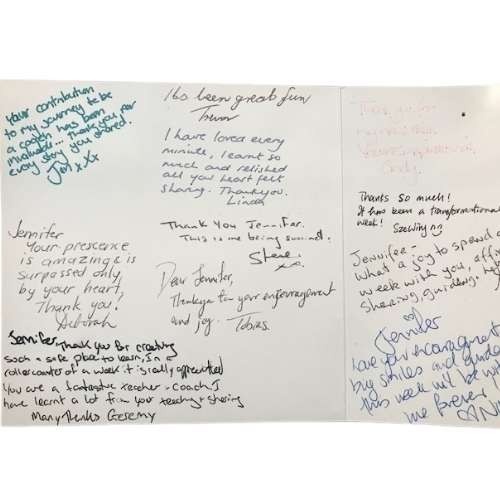 Your contribution
to my journey to be
a coach has been
invaluable... thank you for
every story you shared!
Jen x X x
Its been great fun
Trevor
I have loved every
minute, learnt so
much and relished
all your heart felt
sharing. Thankyou.
Linda
Thank You Jennifer.
This is me being succinct.
Steve
xx
Dear Jennifer,
Thankyou for your encouragement
and joy. Tobias.
Jennifer
Your prescence
is amazing & is
surpassed only
by your heart,
Thank you!
Deborah
Jennifer Thank you for creating
such a safe place to learn, In a
rollercoater of a week it is really appreciated
You are a fantastic teacher + coach I
have learnt a lot from your teaching + sharing
Many Thanks Geremy
Thank you for
Thanks so much!
It has been a transformational
week!
Jennifer -
what a joy to spend a
week with you, affir
sharing, guiding.
Jennifer
Love your encouragment
big smiles and guida
this week will be wit
me forever